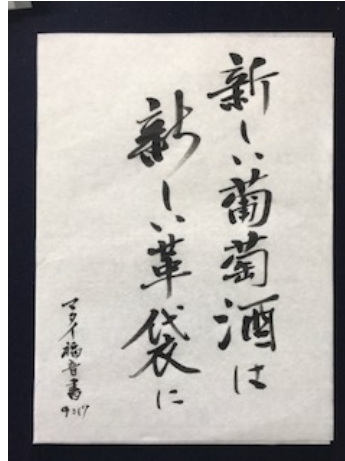 新しい葡萄酒は
新しい革袋に
マタイ福音書
9:17